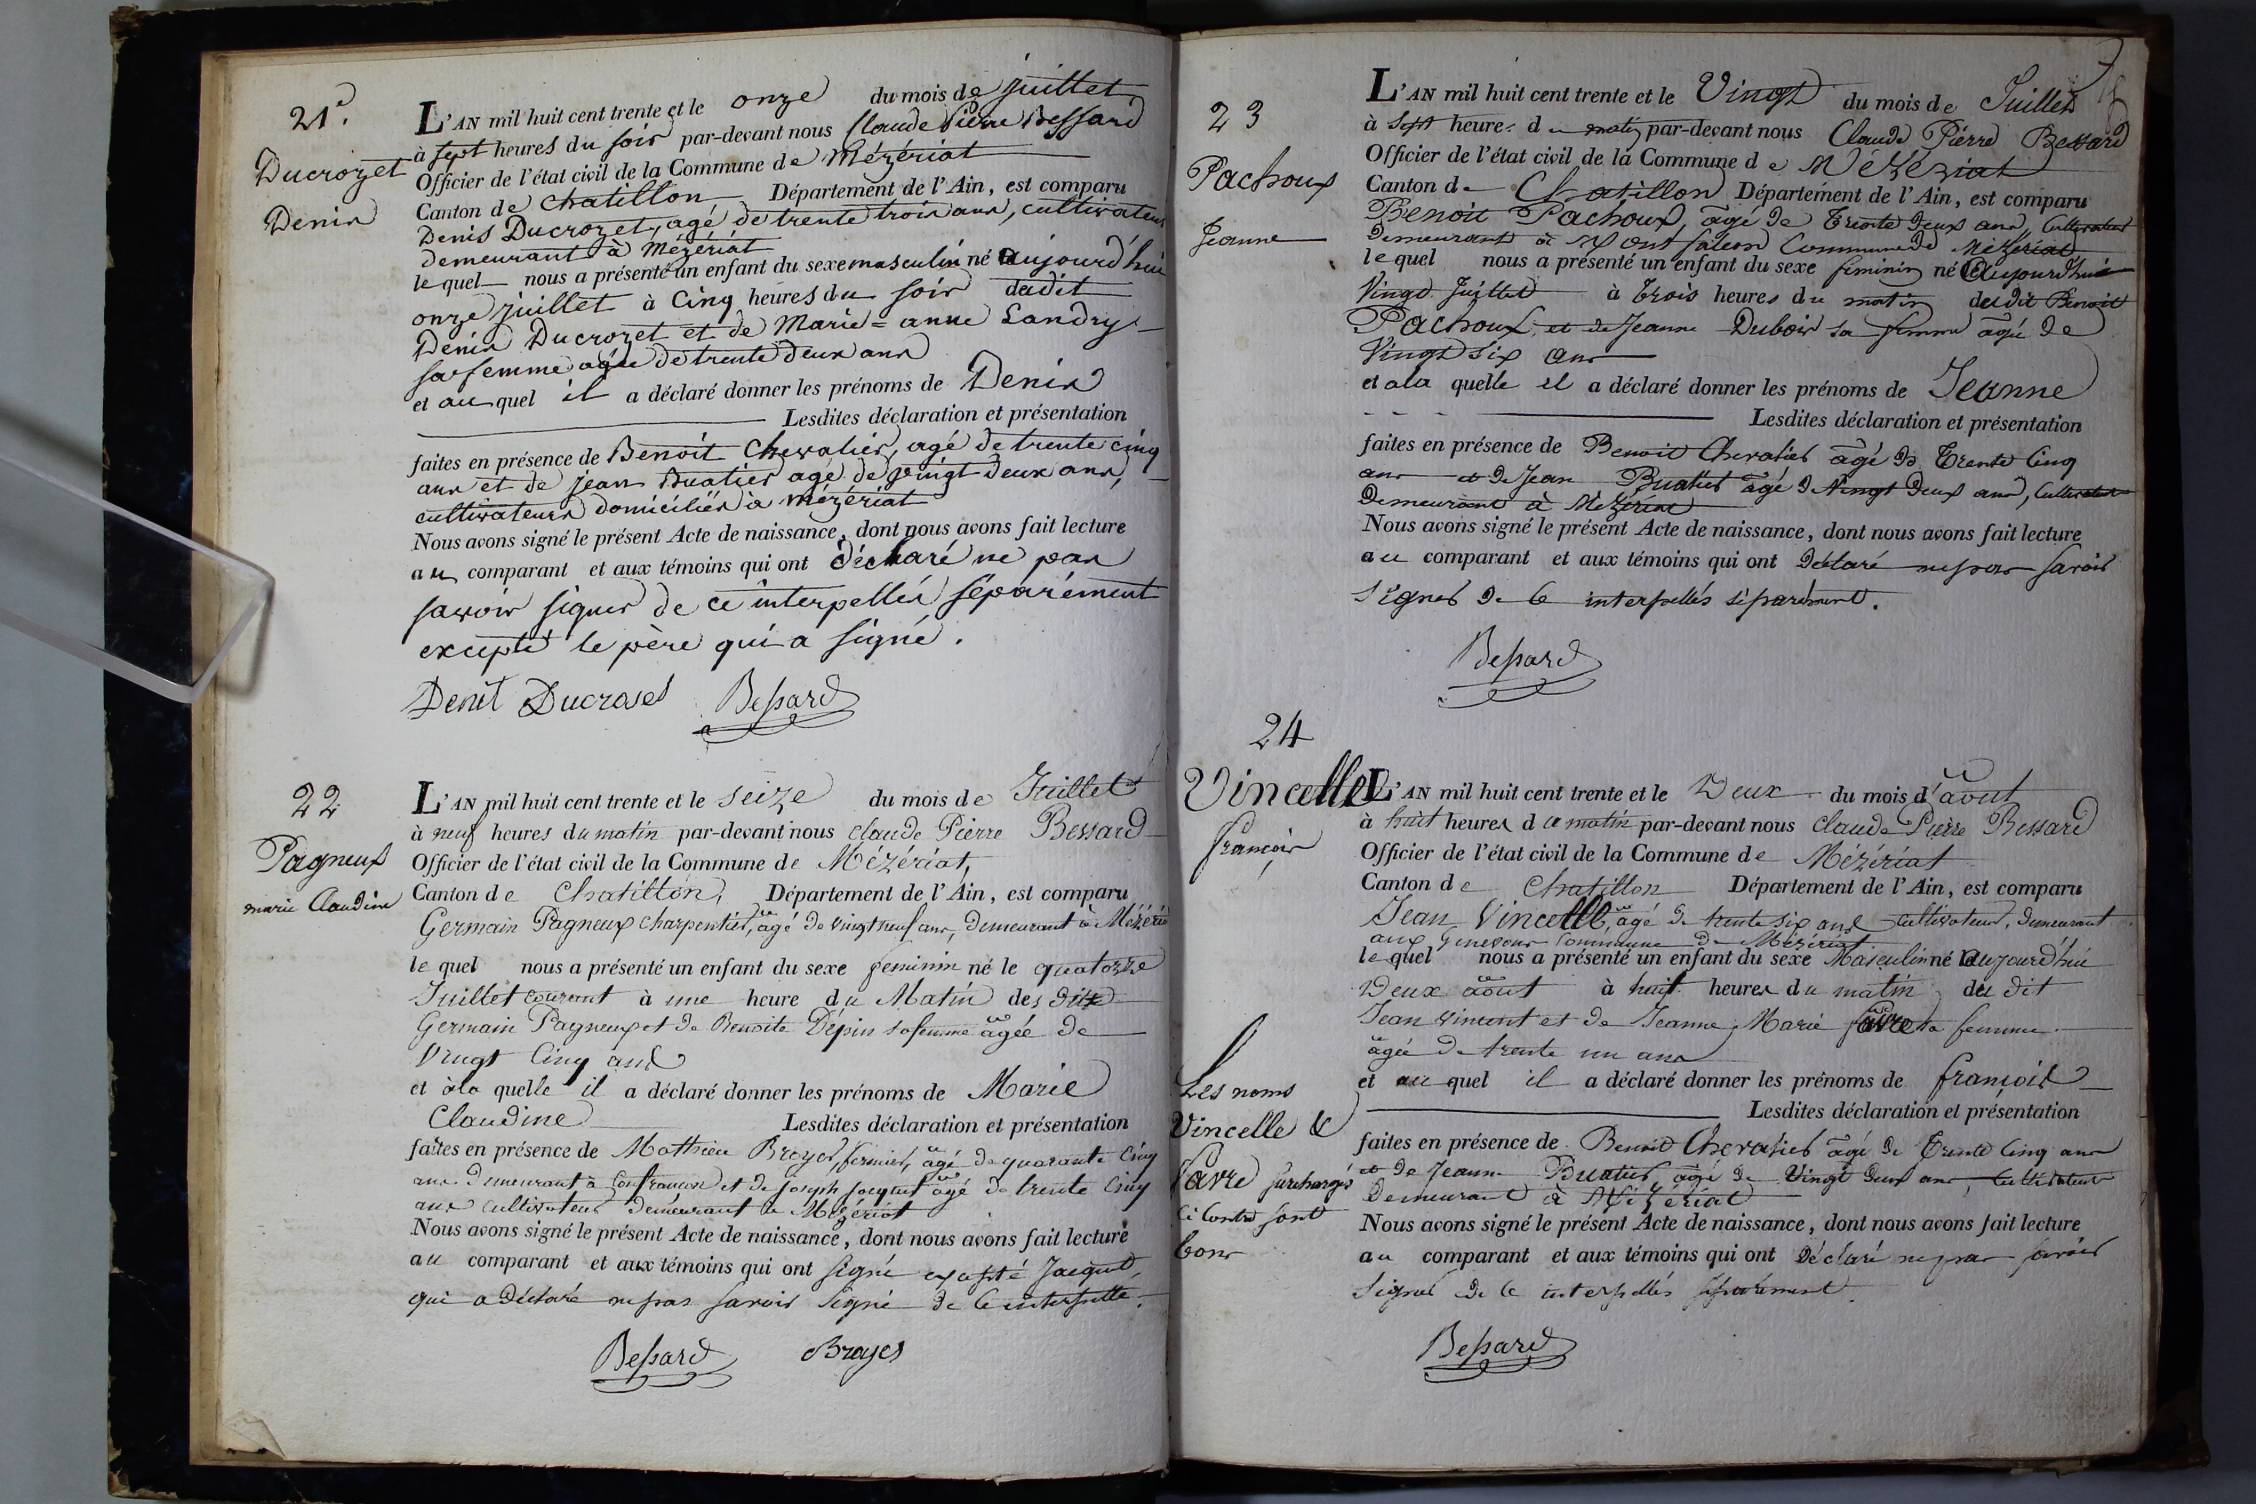 21e.
Ducrozet
Denis
L'AN mil huit cent trente et le onze du mois de juillet
à sept heures du soir par-devant nous Claude Pierre Bessard
Officier de l'état civil de la Commune de Mézériat
Canton de Chatillon Département de l'Ain, est comparu
Denis Ducrozet, agé de trente trois ans, cultivateur
demeurant à Mézériat
le quel nous a présenté un enfant du sexe masculin né aujourd'hui
onze juillet à cinq heures du soir dudit
Denis Ducrozet et de Marie=anne Landry
sa femme agée de trente deux ans
et au quel il a déclaré donner les prénoms de Denis
Lesdites déclaration et présentation
faites en présence de Benoit Chevalier, agé de trente cinq
ans et de jean Buatier agé de vingt deux ans,
cultivateurs domiciliés à Mézériat
Nous avons signé le présent Acte de naissance, dont nous avons fait lecture
au comparant et aux témoins qui ont déclaré ne pas
savoir signer de ce interpellés séparément
excepté le père qui a signé.
Denit Ducroset Bessard
22
Pagneux
marie Claudine
L'AN mil huit cent trente et le seize du mois de Juillet
à neuf heures du matin par-devant nous Claude Pierre Bessard
Officier de l'état civil de la Commune de Mézériat,
Canton de Chatillon, Département de l'Ain, est comparu
Germain Pagneux charpentier, agé de vingt neuf ans, demeurant à Mézériat
le quel nous a présenté un enfant du sexe feminin né le quatorze
Juillet courant à une heure du Matin des dits
Germain Pagneux et de Benoite Dépin sa femme agée de
Vingt Cinq ans
et à la quelle il a déclaré donner les prénoms de Marie
Claudine Lesdites déclaration et présentation
faites en présence de Mathieu Broyer, fermier, agé de quarante cinq
ans demeurant à Confrançon et de Joseph Jacquet agé de trente cinq
ans cultivateur demeurant à Mézériat
Nous avons signé le présent Acte de naissance, dont nous avons fait lecture
au comparant et aux témoins qui ont signé excepté Jacquet
qui a déclaré ne pas savoir signé de ce interpellé.
Bessard Broyer
23
Pachoux
Jeanne
L'AN mil huit cent trente et le Vingt du mois de Juillet
à sept heures du matin par-devant nous Claude Pierre Bessard
Officier de l'état civil de la Commune de Mézériat
Canton de Chatillon Département de l'Ain, est comparu
Benoit Pachoux, agé de trente deux ans, Cultivateur
demeurant à Mont falcon Commune de Mézériat
le quel nous a présenté un enfant du sexe feminin né aujourd'hui
Vingt Juillet à trois heures du matin dudit Benoit
Pachoux et de Jeanne Dubois sa femme agée de
Vingt six ans
et a la quelle il a déclaré donner les prénoms de Jeanne
Lesdites déclaration et présentation
faites en présence de Benoit Chevalier agé de Trente Cinq
ans et de Jean Buatier agé de Vingt deux ans, Cultivateurs
Demeurant à Mézériat
Nous avons signé le présent Acte de naissance, dont nous avons fait lecture
au comparant et aux témoins qui ont déclaré ne pas savoir
signer de ce interpellés séparément.
Bessard
24
Vincelle
françois
L'AN mil huit cent trente et le Deux du mois d'aout
à huit heures du matin par-devant nous Claude Pierre Bessard
Officier de l'état civil de la Commune de Mézériat
Canton de Chatillon Département de l'Ain, est comparu
Jean Vincelle, agé de trente six ans cultivateur, demeurant
aux Commune de Mézériat
le quel nous a présenté un enfant du sexe Masculin né aujourd'hui
Deux aout à huit heures du matin du dit
Jean Vincent et de Jeanne Marie favre sa femme
agée de trente un ans
et au quel il a déclaré donner les prénoms de françois
Lesdites déclaration et présentation
faites en présence de Benoit Chevalier agé de Trente Cinq ans
et de Jeann Buatier, agé de Vingt deux ans, Cultivateurs
Demeurant à Mézériat
Nous avons signé le présent Acte de naissance, dont nous avons fait lecture
au comparant et aux témoins qui ont déclaré ne pas savoir
signer de ce interpellés séparément.
Bessard
Les noms
Vincelle &
favre surchargés
ci contre sont
bons